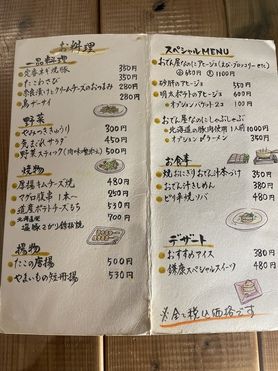 お料理
一品料理
350円
たこわさび 350円
奈良漬けとクリームチーズのおつまみ 280円
280円
野菜
やみつききゅうり 300円
気まぐれサラダ 450円
野菜スティック(肉味噌 500円
焼物
厚揚キムチーズ焼 480円
マグロ腹串 1本〜 250円
道産ポテトチーズもち 530円
700円
揚物
たこの唐揚 500円
やまいもの短冊揚 530円
スペシャルMENU
おでん屋なのにアヒージョ(えび・ブロッコリー etc)
650円 1100円
砂肝のアヒージョ 580円
明太ポテトのアヒージョ 580円
オプションバケット2コ 100円
おでん屋なのにしゃぶしゃぶ
北海道の豚肉使用 1人前 1000円
オプションラーメン
お食事
焼おにぎりおでん汁茶づけ 350円
おでん汁そうめん 380円
ピリ辛焼ソバ 480円
デザート
おすすめアイス 380円
スペシャルスイーツ 480円
※全て税込価格です